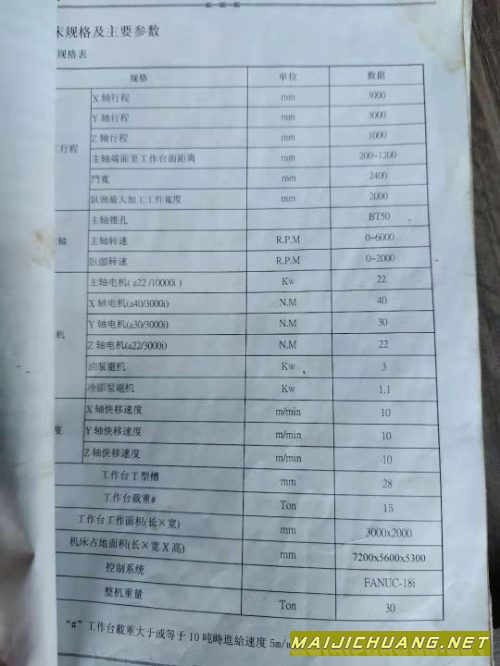 床规格及主要参数
规格表
规格 单位 数据
X 轴行程 mm 3000
Y 轴行程 mm 3000
Z 轴行程 mm 1000
行程 主轴端面至工作台面距离 mm 200~1200
門寬 mm 2400
臥頭最大加工工件寬度 mm 2000
主轴锥孔 BT50
轴 主轴转速 R.P.M 0~6000
臥頭转速 R.P.M 0~2000
主轴电机(a22/10000i) Kw 22
X 轴电机(a40/3000i) N.M 40
机 Y 轴电机(a30/3000i) N.M 30
Z 轴电机(a22/3000i) N.M 22
油泵電机 Kw 3
冷卻泵電机 Kw 1.1
X 轴快移速度 m/min 10
度 Y 轴快移速度 m/min 10
Z 轴快移速度 m/min 10
工作台 T 型槽 mm 28
工作台載重# Ton 15
工作台工作面积(长×宽) mm 3000x2000
机床占地面积(长×宽 X 高) mm 7200x5600x5300
控制系统 FANUC-18i
整机重量 Ton 30
"#"工作台載重大于或等于 10 吨時進給速度 5m/
MAIJICHUANG.NET